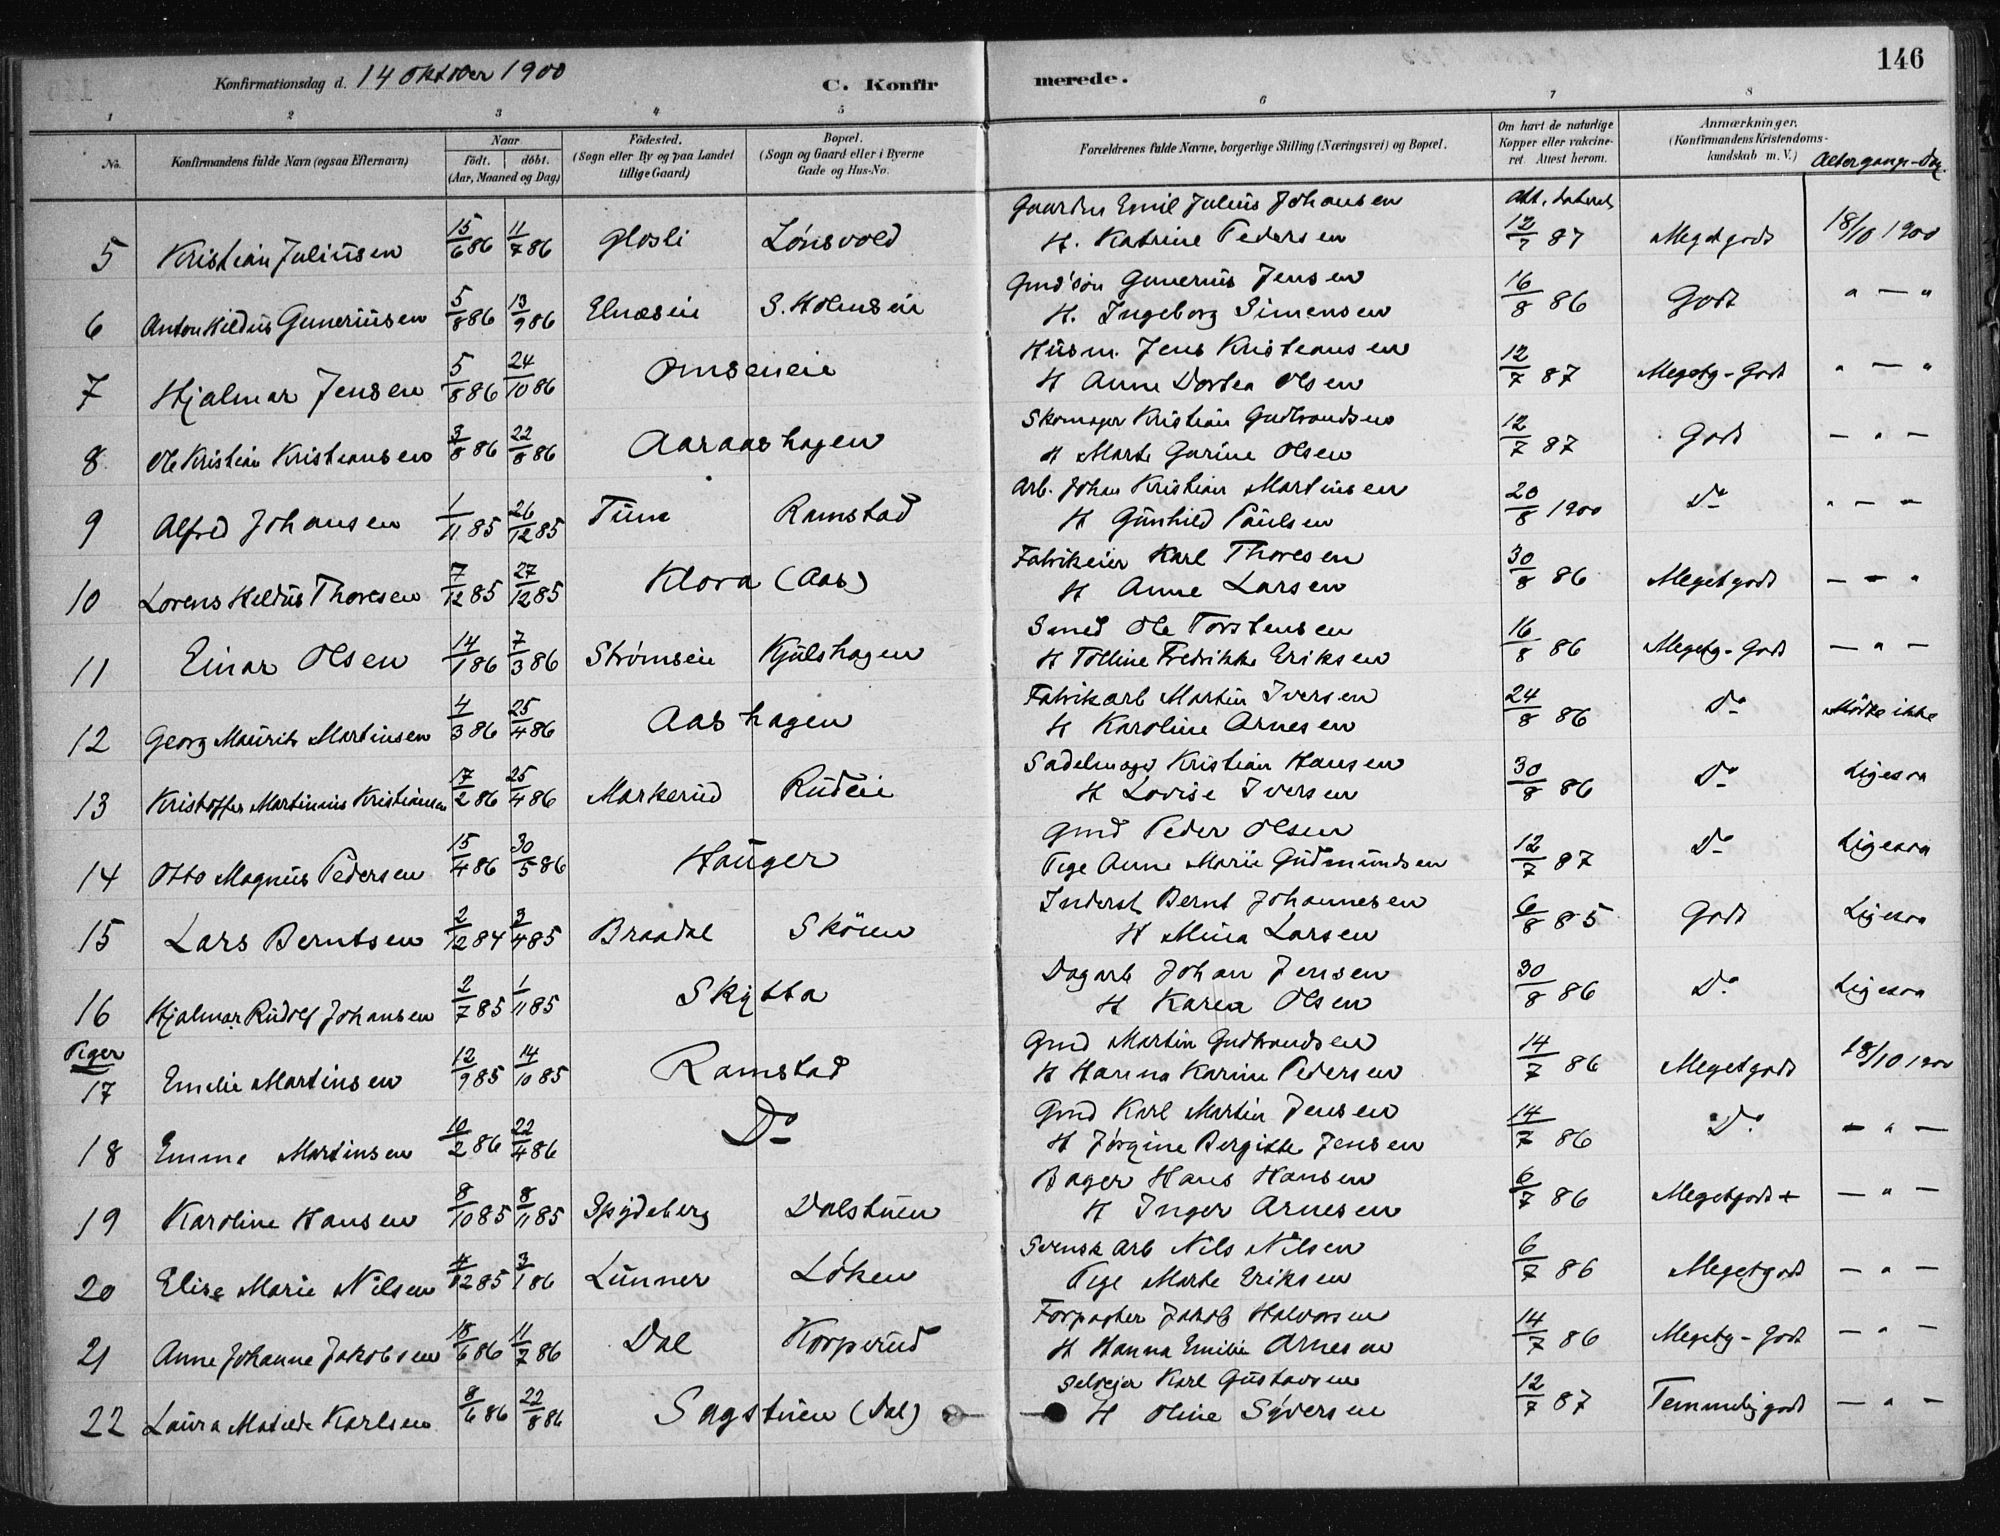 146
Konfirmationsdag d. 14 Oktober 1900
C. Konfirmerede.
1 2 3 4 5 6 7 8
No.
Konfirmandens fulde Navn (ogsaa Efternavn)
Naar
födt. döbt.
(Aar, Maaned og Dag)
Födested.
(Sogn eller By og paa Landet
tillige Gaard)
Bopæl.
(Sogn og Gaard eller i Byerne
Gade og Hus-No.
Forældrenes fulde Navne, borgerlige Stilling (Næringsvei) og Bopæl.
Om havt de naturlige
Kopper eller vakcine-
ret. Attest herom.
Anmærkninger.
(Konfirmandens Kristendoms-
kundskab m. V.)
Altergangs-Dag
5 Kristian Juliusen 15/6 86 11/7 86 Glosli Lønsvold Gaardm Emil Julius Johansen
H. Katrine Pedersen 12/7 87 Megetgodt 18/10 1900
6 Anton Hildus Guneriusen 5/8 86 13/9 86 Elnæseie S. Holmseie Gmd'søn Gunerius Jensen
H. Ingeborg Simensen 16/8 86 Godt " — "
7 Hjalmar Jensen 5/8 86 24/10 86 Omseneie Husm. Jens Kristiansen
H Anne Dortea Olsen 12/7 87 Megetg-Godt " — "
8 Ole Kristian Kristiansen 3/8 86 22/8 86 Aaraashagen Skomager Kristian Gudbrandsen
H Marte Garine Olsen 12/7 87 Godt — " —
9 Alfred Johansen 1/11 85 26/12 85 Tune Ramstad Arb. Johan Kristian Martinsen
H Gunhild Paulsen 20/8 1900 Do " — —
10 Lorens Heldus Thoresen 7/12 85 27/12 85 Klora (Aas) Fabrikeier Karl Thoresen
H Anne Larsen 30/8 86 Megetgodt — — "
11 Einar Olsen 14/1 86 7/3 86 Strømseie Kjulshagen Smed Ole Torstensen
H Tolline Fredrikke Eriksen 16/8 86 Megetg-Godt — " —
12 Georg Maurits Martinsen 4/3 86 25/4 86 Aashagen Fabrikarb Martin Iversen
H Karoline Arnesen 24/8 86 Do Mødte ikke
13 Kristoffer Martinius Kristiansen 17/2 86 25/4 86 Markerud Rudeie Sadelmager Kristian Hansen
H Lovise Iversen 30/8 86 Do Ligesaa
14 Otto Magnus Pedersen 15/4 86 30/5 86 Hauger Gmd Peder Olsen
Pige Anne Marie Gudmundsen 12/7 87 Do Ligesaa
15 Lars Berntsen 2/12 84 3/4 85 Braadal Skøien Inderst Bernt Johannesen
H Mina Larsen 6/8 85 Godt Ligesaa
16 Hjalmar Rudolf Johansen 2/7 85 1/11 85 Skytta Dagarb Johan Jensen
H Karen Olsen 30/8 86 Do Ligesaa
Piger
17 Emelie Martinsen 12/9 85 14/10 85 Ramstad Gmd Martin Gudbrandsen
H Hanna Karine Pedersen 14/7 86 Megetgodt 18/10 1900
18 Emma Martinsen 10/2 86 22/4 86 Do Gmd Karl Martin Jensen
H Jørgine Bergitte Jensen 14/7 86 Do — " —
19 Karoline Hansen 8/10 85 8/11 85 Spydeberg Dalstuen Bager Hans Hansen
H Inger Arnesen 6/7 86 Megetgodt + — " —
20 Elise Marie Nilsen 4/12 85 3/1 86 Lunner Løken Svensk Arb Nils Nilsen
Pige Marte Eriksen 6/7 86 Megetgodt — " —
21 Anne Johanne Jakobsen 18/6 86 11/7 86 Dal Korperud Forpagter Jakob Halvorsen
H Hanna Emilie Arnesen 14/7 86 Megetg-Godt — " —
22 Laura Matilde Karlsen 8/6 86 22/8 86 Sagstuen (Dal) Selveier Karl Gustavsen
H Oline Syversen 12/7 87 Temmelig godt — " —